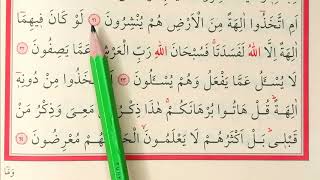 اَمِ اتَّخَذُٓوا اٰلِهَةً مِنَ الْاَرْضِ هُمْ يُنْشِرُونَ ﴿٢١﴾ لَوْ كَانَ ف۪يهِمَٓا
اٰلِهَةٌ اِلَّا اللّٰهُ لَفَسَدَتَاۚ فَسُبْحَانَ اللّٰهِ رَبِّ الْعَرْشِ عَمَّا يَصِفُونَ ﴿٢٢﴾
لَا يُسْـَٔلُ عَمَّا يَفْعَلُ وَهُمْ يُسْـَٔلُونَ ﴿٢٣﴾ اَمِ اتَّخَذُوا مِنْ دُونِه۪ٓ
اٰلِهَةًۜ قُلْ هَاتُوا بُرْهَانَكُمْۚ هٰذَا ذِكْرُ مَنْ مَعِيَ وَذِكْرُ مَنْ
قَبْل۪يۜ بَلْ اَكْثَرُهُمْ لَا يَعْلَمُونَۙ الْحَقَّ فَهُمْ مُعْرِضُونَ ﴿٢٤﴾
وَمَٓا